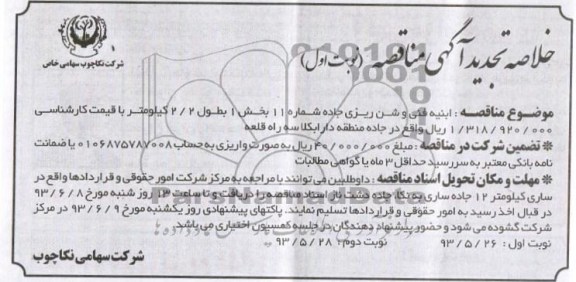 خلاصه تجدید آگهی مناقصه (نوبت اول)
شرکت نکاچوب سهامی خاص
موضوع مناقصه : ابنیه فنی و شن ریزی جاده شماره ۱۱ بخش ۱ بطول ۲/۲ کیلومتر با قیمت کارشناسی
۱/۳۱۸/۹۲۰/۰۰۰ ریال واقع در جاده منطقه دارابکلا سه راه قلعه
* تضمین شرکت در مناقصه : مبلغ ۴۰/۰۰۰/۰۰۰ ریال به صورت واریزی به حساب ۰۱۰۶۸۷۵۷۸۷۰۰۸ یا ضمانت
نامه بانکی معتبر به سررسید حداقل ۳ ماه یا گواهی مطالبات
* مهلت و مکان تحویل اسناد مناقصه : داوطلبین می توانند با مراجعه به مرکز شرکت امور حقوقی و قراردادها واقع در
ساری کیلومتر ۱۲ جاده ساری به نکا، جاده دشت ناز اسناد مناقصه را دریافت و تا ساعت ۱۳ روز شنبه مورخ ۹۳/۶/۸
در قبال اخذ رسید به امور حقوقی و قراردادها تسلیم نمایند. پاکتهای پیشنهادی روز یکشنبه مورخ ۹۳/۶/۹ در مرکز
شرکت گشوده می شود و حضور پیشنهاد دهندگان در جلسه کمسیون اختیاری می باشد.
نوبت اول : ۹۳/۵/۲۶ نوبت دوم : ۹۳/۵/۲۸
شرکت سهامی نکاچوب